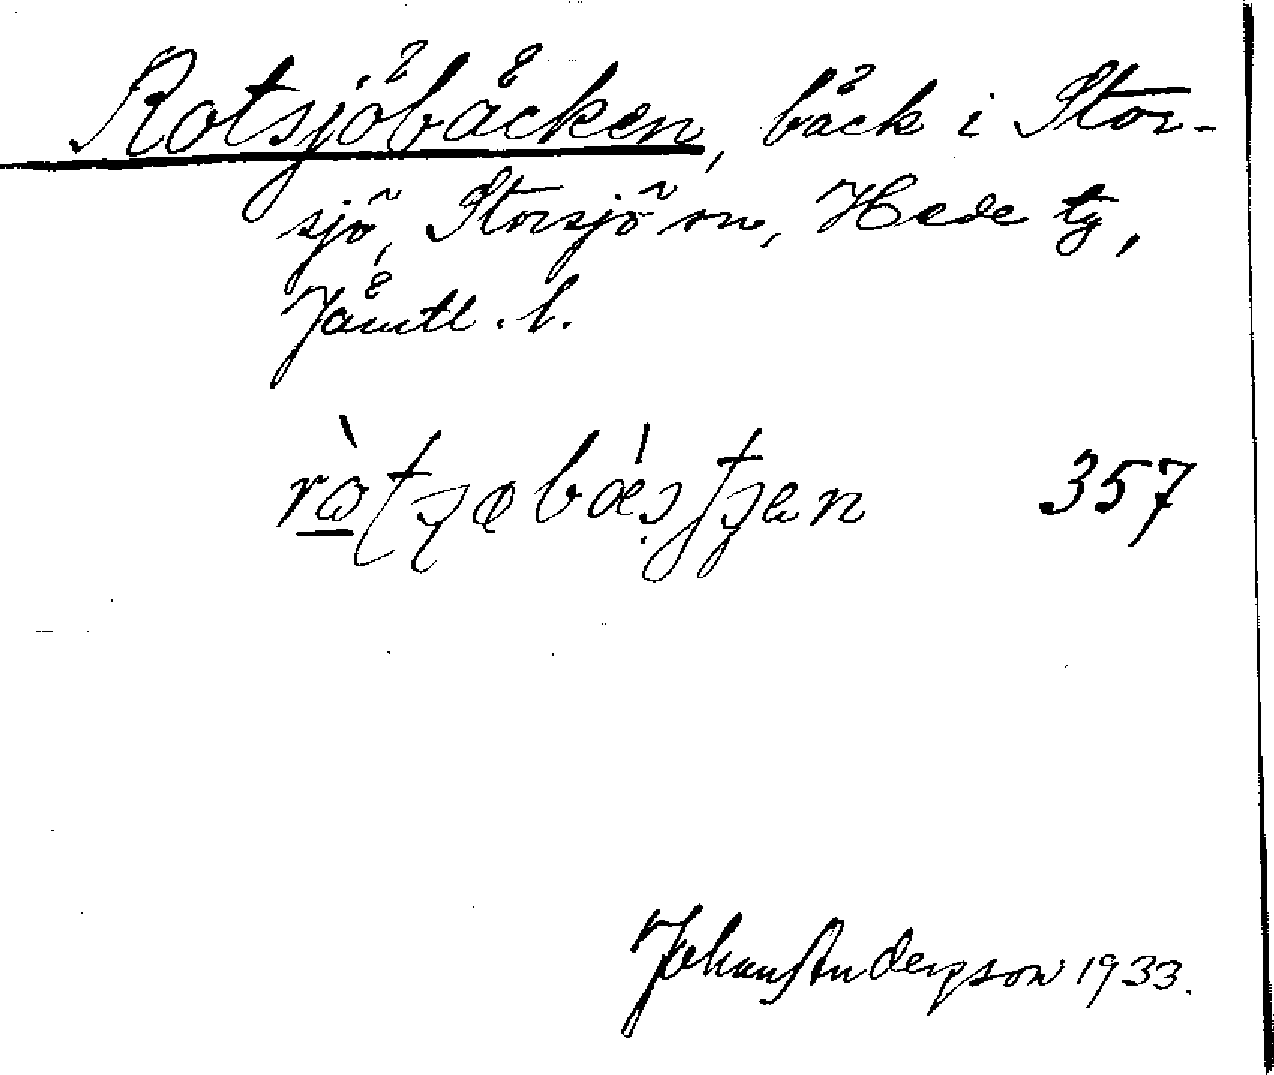 Rotsjöbäcken, bäck i Stor-
sjö, Storsjö sn, Hede tg,
Jämtl. l.
357
Johan Anderson 1933.